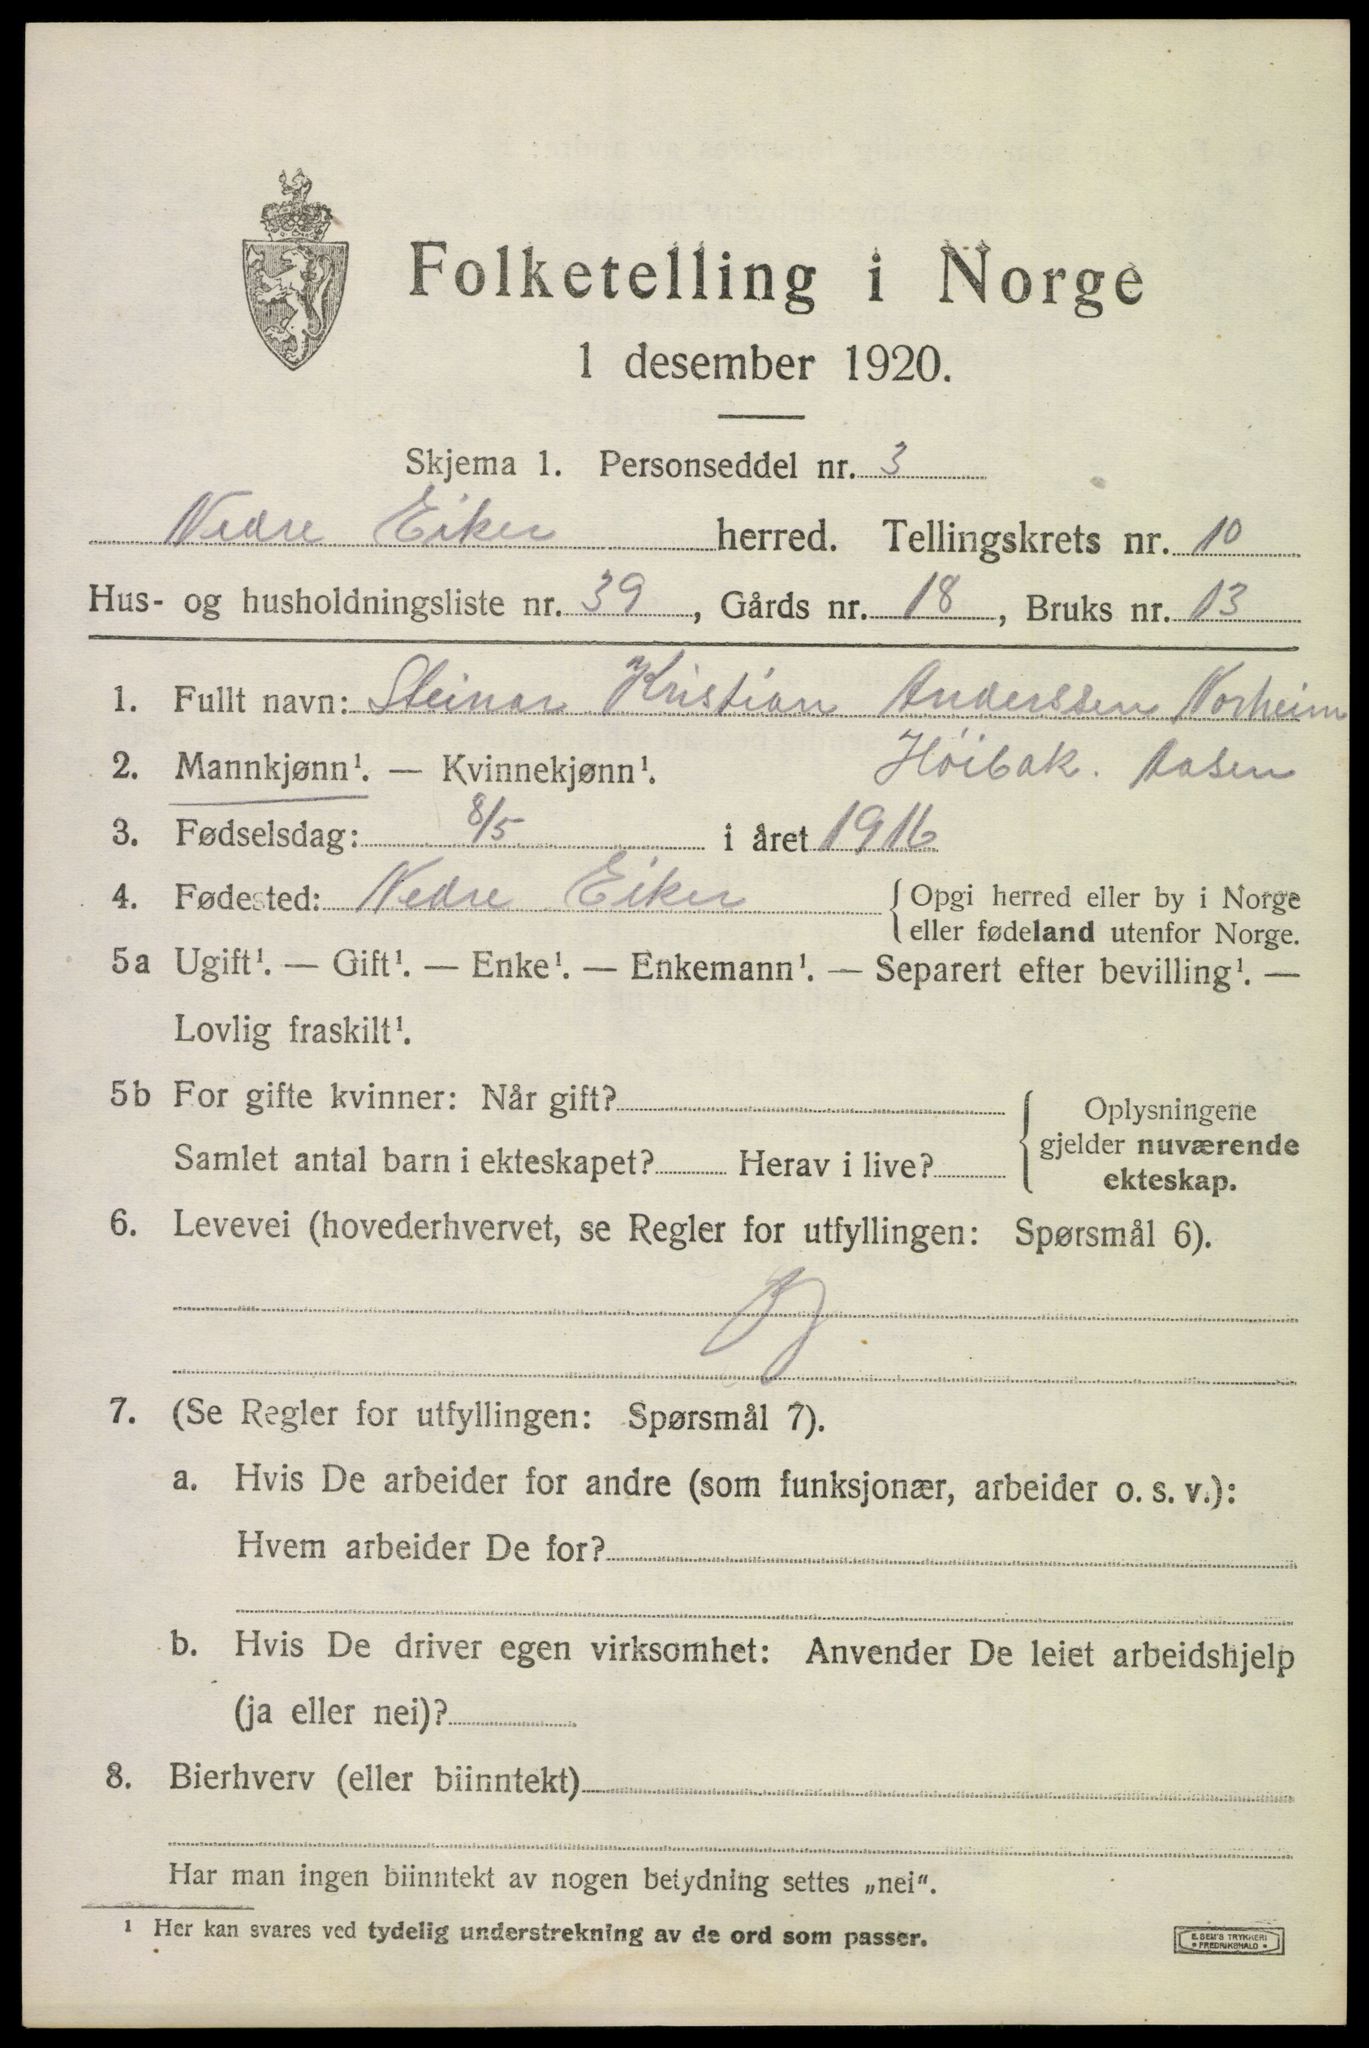 Folketelling i Norge
1 desember 1920.
Skjema 1. Personseddel nr. 3
Nedre Eiker herred. Tellingskrets nr. 10
Hus- og husholdningsliste nr. 39, Gårds nr. 18, Bruks nr. 13
1. Fullt navn: Steinar Kristian Anderssen Norheim
2. Mannkjønn¹. — Kvinnekjønn¹. Höibak. Aasen
3. Fødselsdag: 8/5 i året 1916
4. Fødested: Nedre Eiker { Opgi herred eller by i Norge
eller fødeland utenfor Norge.
5a Ugift¹. — Gift¹. — Enke¹. — Enkemann¹. — Separert efter bevilling¹. —
Lovlig fraskilt¹.
5b For gifte kvinner: Når gift? { Oplysningene
gjelder nuværende
Samlet antal barn i ekteskapet? Herav i live? ekteskap.
6. Levevei (hovederhvervet, se Regler for utfyllingen: Spørsmål 6).
7. (Se Regler for utfyllingen: Spørsmål 7).
a. Hvis De arbeider for andre (som funksjonær, arbeider o. s. v.):
Hvem arbeider De for?
b. Hvis De driver egen virksomhet: Anvender De leiet arbeidshjelp
(ja eller nei)?
8. Bierhverv (eller biinntekt)
Har man ingen biinntekt av nogen betydning settes „nei".
¹ Her kan svares ved tydelig understrekning av de ord som passer.
E. SEM'S TRYKKERI
• FREDRIKSHALD •